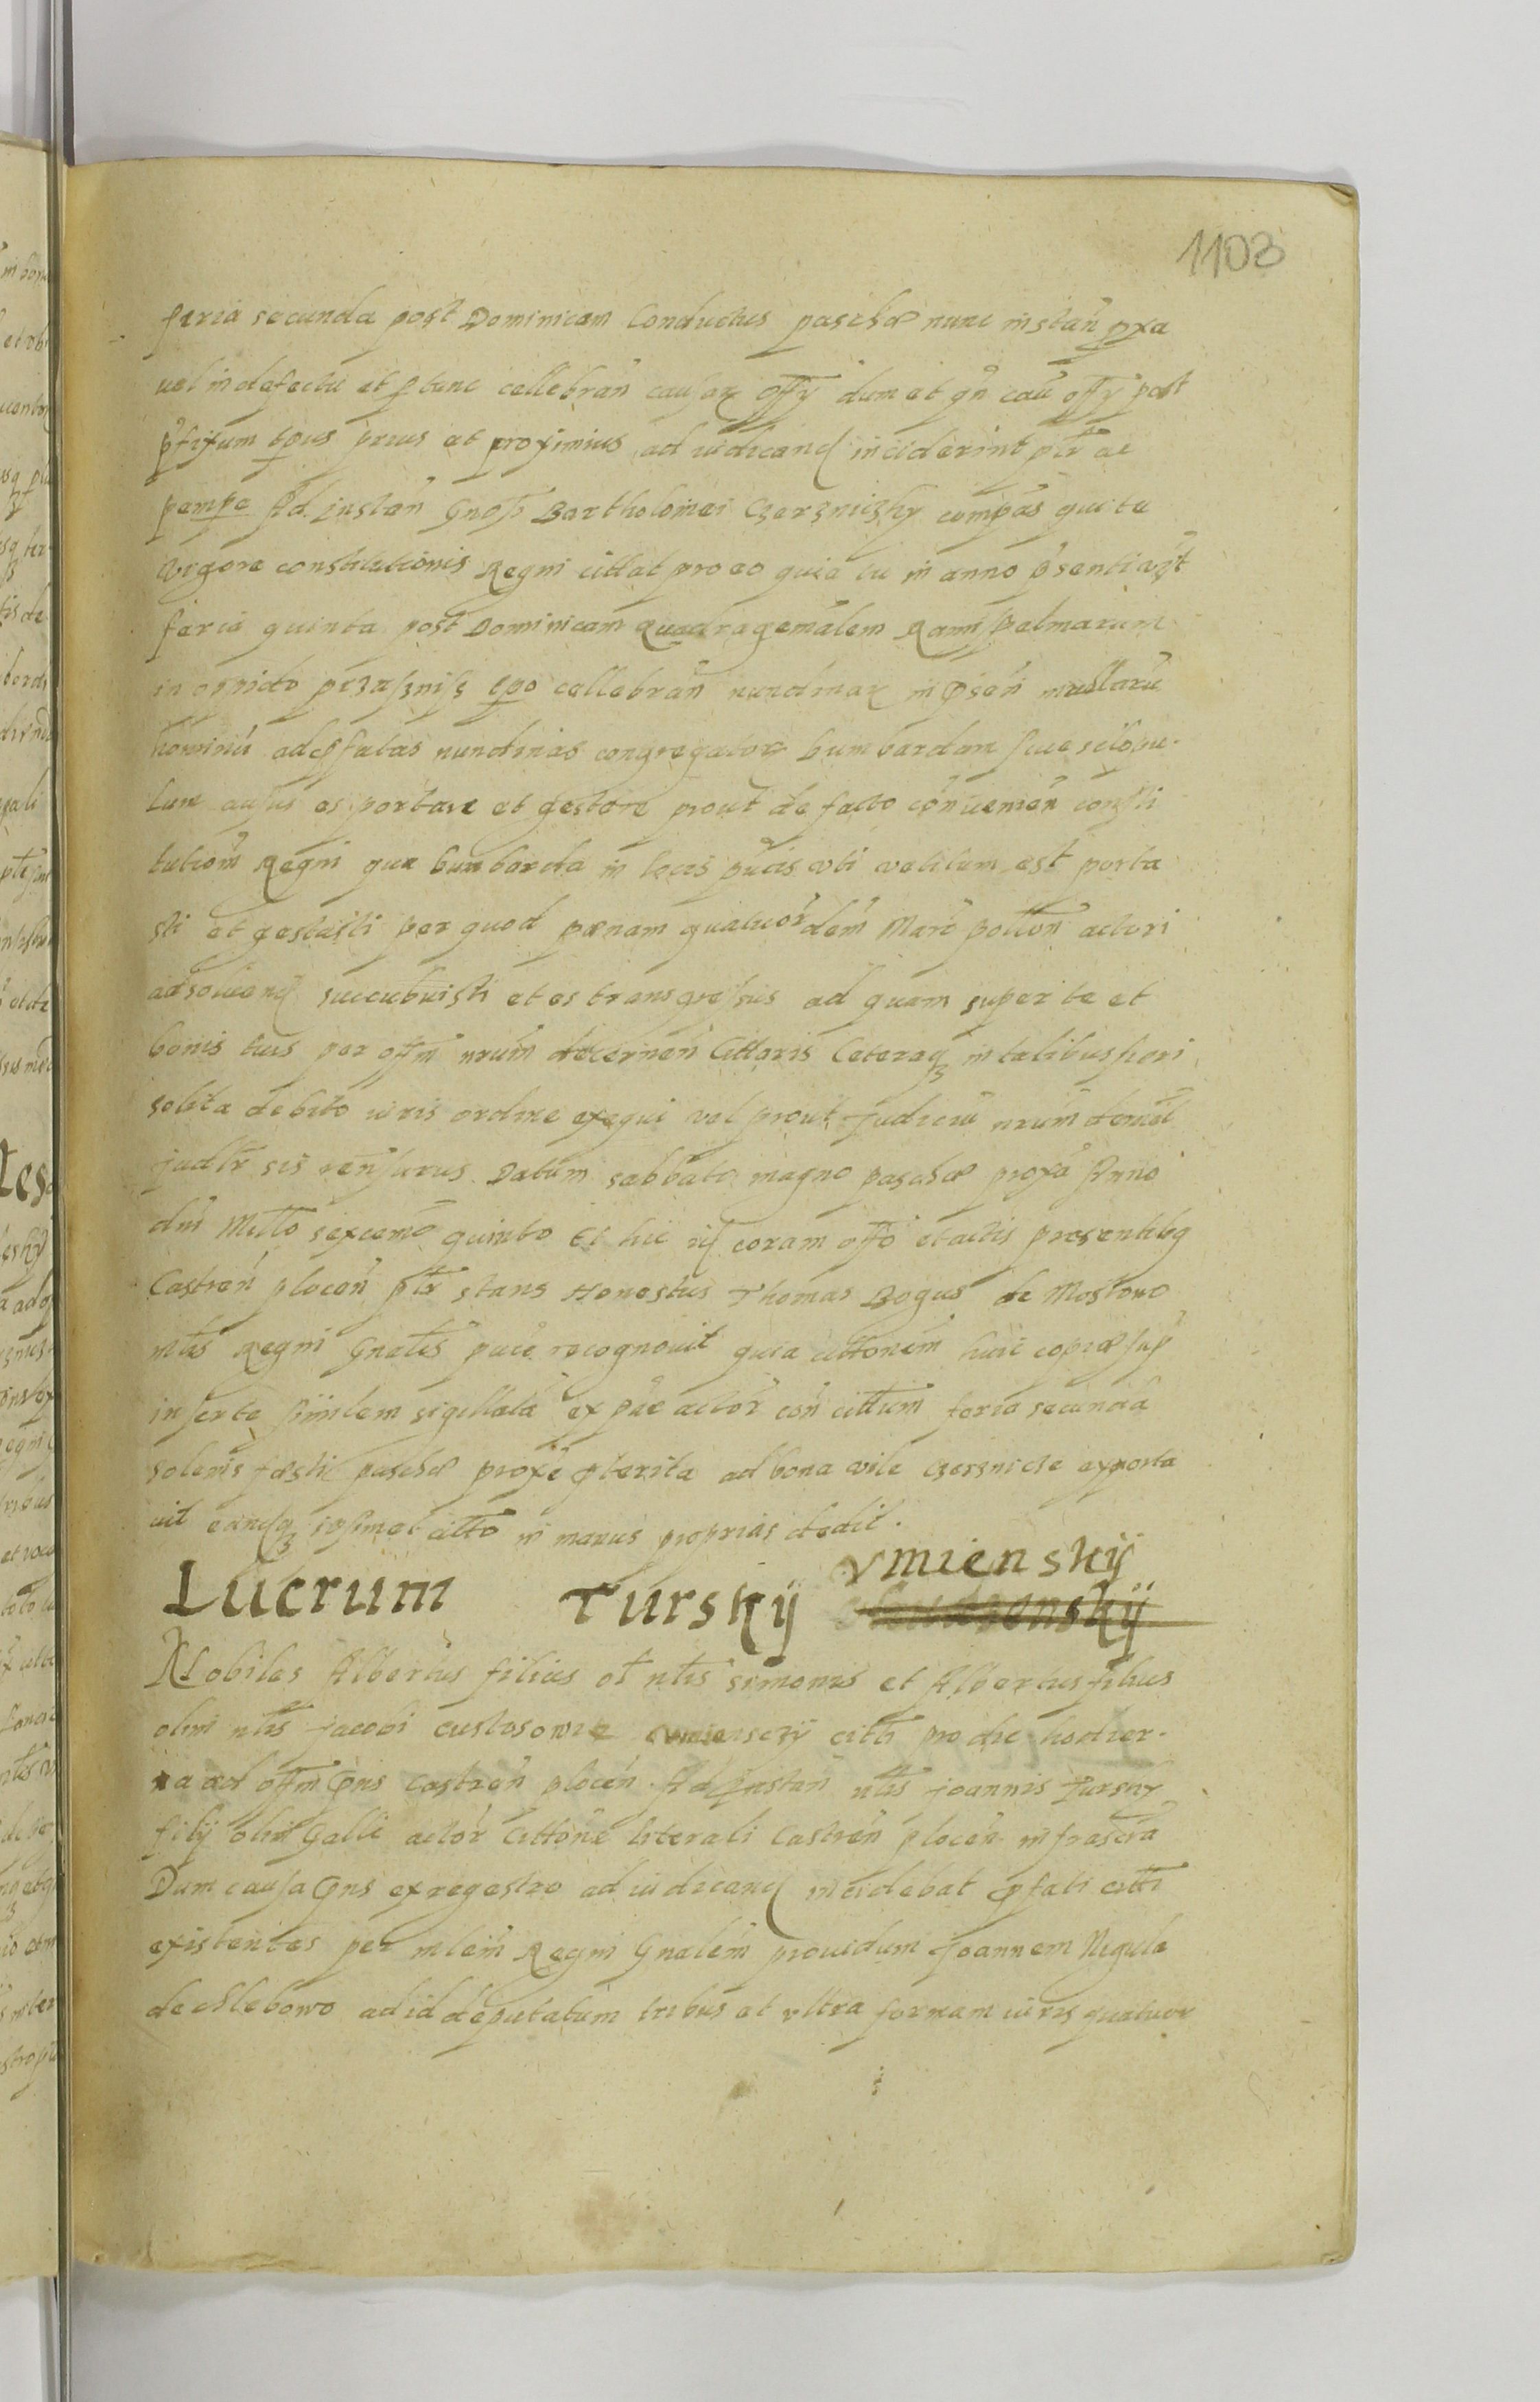 1103
feria secunda post Dominicam Conductus paschæ nunc instañ pxa
uel in defectu et ptunc cellebrañ causarꝝ offÿ dum et gñ cau offÿ post
pfixum tpus prius et proximius ad iudicand inciderint ptr ac
pempe Ad Instan Gnosi Bartholomei Czerzniczky compas qui te
vigore constitutionis Regni cittat pro eo quia tu in anno psenti
feria quinta post Dominicam quadragemalem Ramispalmarum
in oppido epo cellebrañ nundinarꝝ in psen multaru
hominu ad pfatas nundinas congregatorꝝ bumbardam siue sclopu-
lum ausus es portare et gestare prout de facto conuenien consti
tutiom Regni qua bumbarda in locis pucis vbi vetitum est porta
sti et gestasti per quod pænam quatuor dem Marc pollon actori
adsoluend succubuisti et es transgressus ad quam super te et
bonis tuis per offm nrum decernen Cittaris Ceteraqꝫ in talibus fieri
solita debito iuris ordine exequi vel prout Judiciu nrum
sis rensurus Datum sabbato magno paschæ proxa Anno
dni Millo sexcemo quinto Et hic id coram offo et actis presentibq
Castren plocen ptr stans Honestus Thomas Bogus de Mostowo
mtis Regni Gnalis puce recognouit quia cittonem huic copiæ sup
inserte similem sigillata ex pue actor con cittum feria secunda
solenis festi paschæ proxe pterita ad bona ville Czerznicze exporta
uit eandqꝫ ipsimet citto in manus proprias dedit.
Lucrum Turskÿ Vmienskÿ
Nobiles Albertus filius ol nlis Simonis et Albertus filius
olim nlis Jacobi citti pro die hodier-
na ad offm pns Castren plocen Ad Instan nlis Joannis Tursky
filÿ olim Galli actor Cittone literali Castren plocen infrascra
Dum causa pns ex regestro ad iudicand incidebat pfati citti
existentes per mlem Regni Gnalem prouidum Joannem Nigula
de Slebowo ad id deputatum tribus et vltra formam iuris quatuor